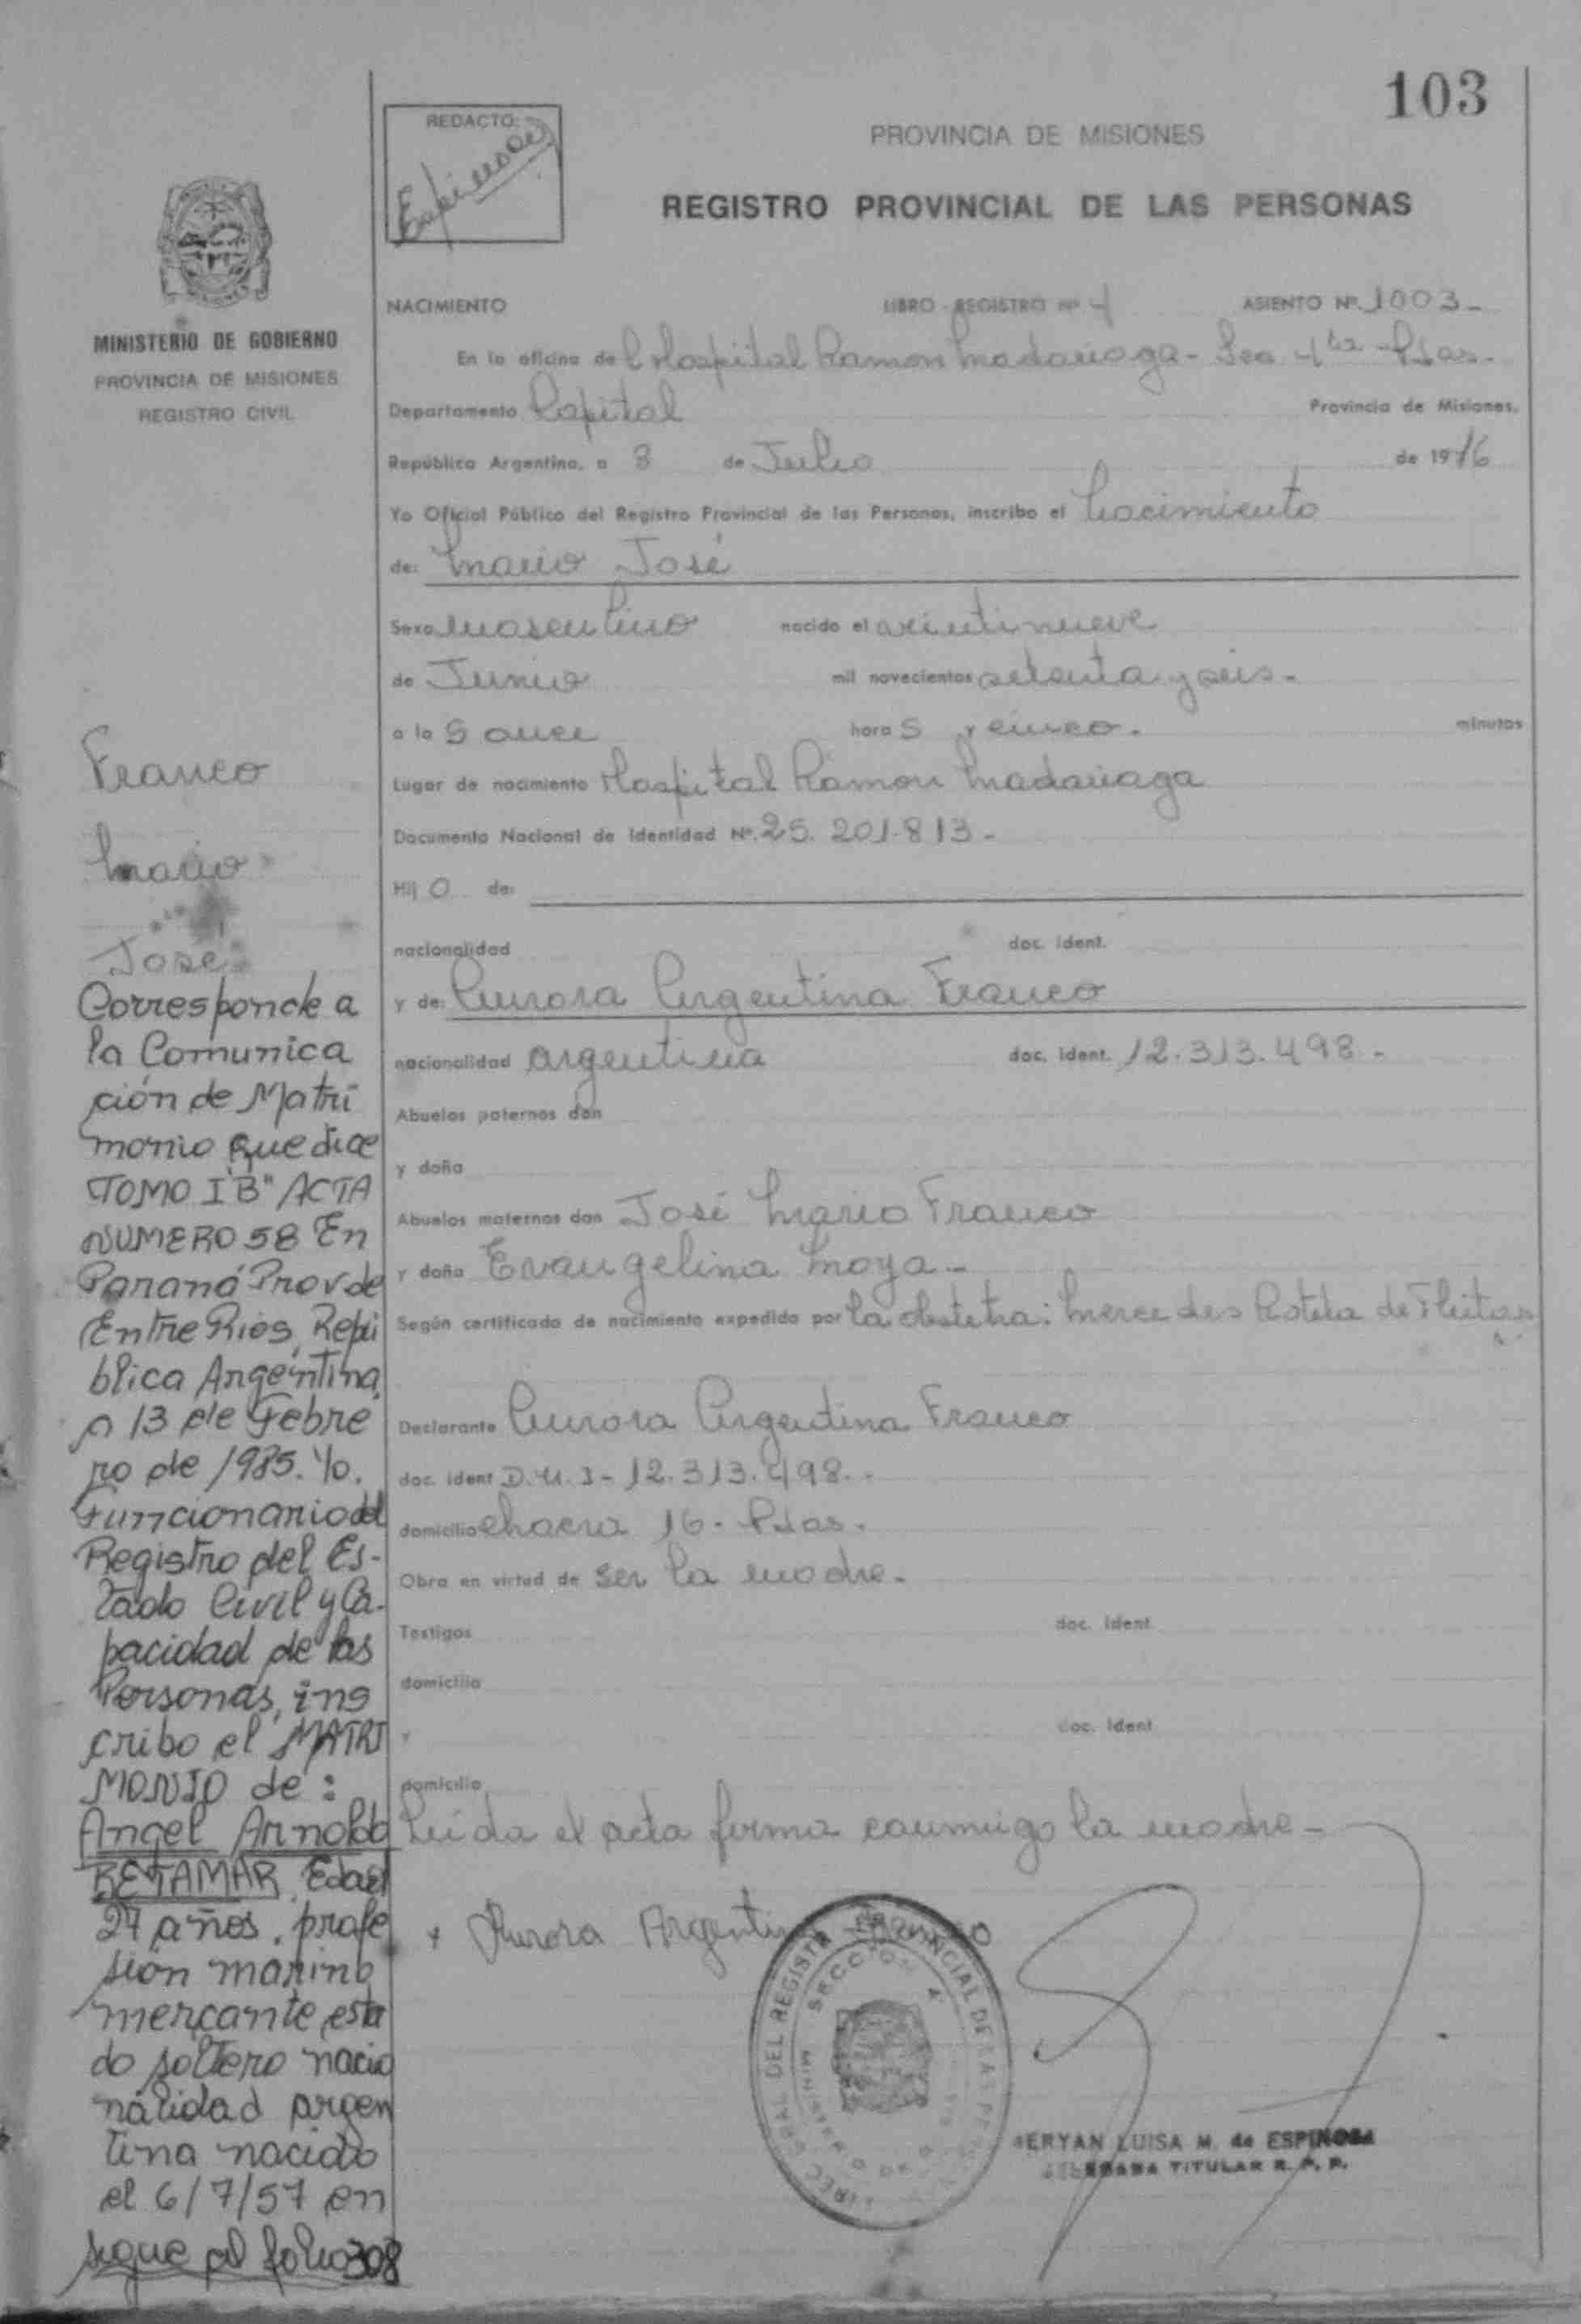 103
REDACTO:
Espinosa
PROVINCIA DE MISIONES
REGISTRO PROVINCIAL DE LAS PERSONAS
MINISTERIO DE GOBIERNO
PROVINCIA DE MISIONES
REGISTRO CIVIL
NACIMIENTO LIBRO - REGISTRO Nº 4 ASIENTO Nº 1003-
En la oficina de Hospital Ramon Madariaga - Sec 4ta - Pdas.
Departamento Capital Provincia de Misiones.
República Argentina, a 8 de Julio de 1976
Yo Oficial Público del Registro Provincial de las Personas, inscribo el Nacimiento
de: Mario José
Sexo masculino nacido el veintinueve
de Junio mil novecientos setenta y seis-
a la s once hora s y cinco. minutos
Lugar de nacimiento Hospital Ramon Madariaga
Documento Nacional de Identidad Nº. 25.201.813-
Hij o de:
nacionalidad doc. ident.
y de: Aurora Argentina Franco
nacionalidad argentina doc. ident. 12.313.498-
Abuelos paternos don
y doña
Abuelos maternos don José Mario Franco
y doña Evangelina Moya-
Según certificado de nacimiento expedido por la obstetra: Mercedes de Fleitas
Declarante Aurora Argentina Franco
doc. ident D.N.I- 12.313.498-
domicilio chacra 16- Pdas.
Obra en virtud de ser la madre-
Testigos doc. ident.
domicilio
y doc. ident
domicilio
Leida el acta firma conmigo la madre-
+ Aurora Argentina Franco
SECCION 4
MERYAN LUISA M. de ESPINOSA
TITULAR R. P. P.
Franco
Mario
Jose
Corresponde a
la Comunica
ción de Matri
monio que dice
TOMO I "B" ACTA
NUMERO 58 En
Paraná Prov de
Entre Rios, Repú
blica Argentina,
a 13 de Febre
ro de 1985. Yo.
Funcionario del
Registro del Es-
tado Civil y Ca-
pacidad de las
Personas, ins
cribo el MATRI
MONIO de:
Angel Arnoldo
RETAMAR, Edad
27 años, profe
sion marino
mercante, esta
do soltero nacio
nalidad argen
tina nacido
el 6/7/57 en
sigue al folio 308